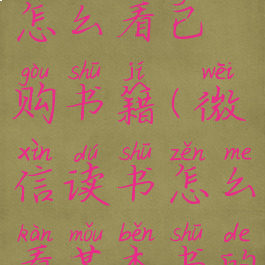 怎么看已
gòu shū jí wēi
购书籍(微
xìn dú shū zěn me
信读书怎么
kàn mǒu běn shū de
看某本书的